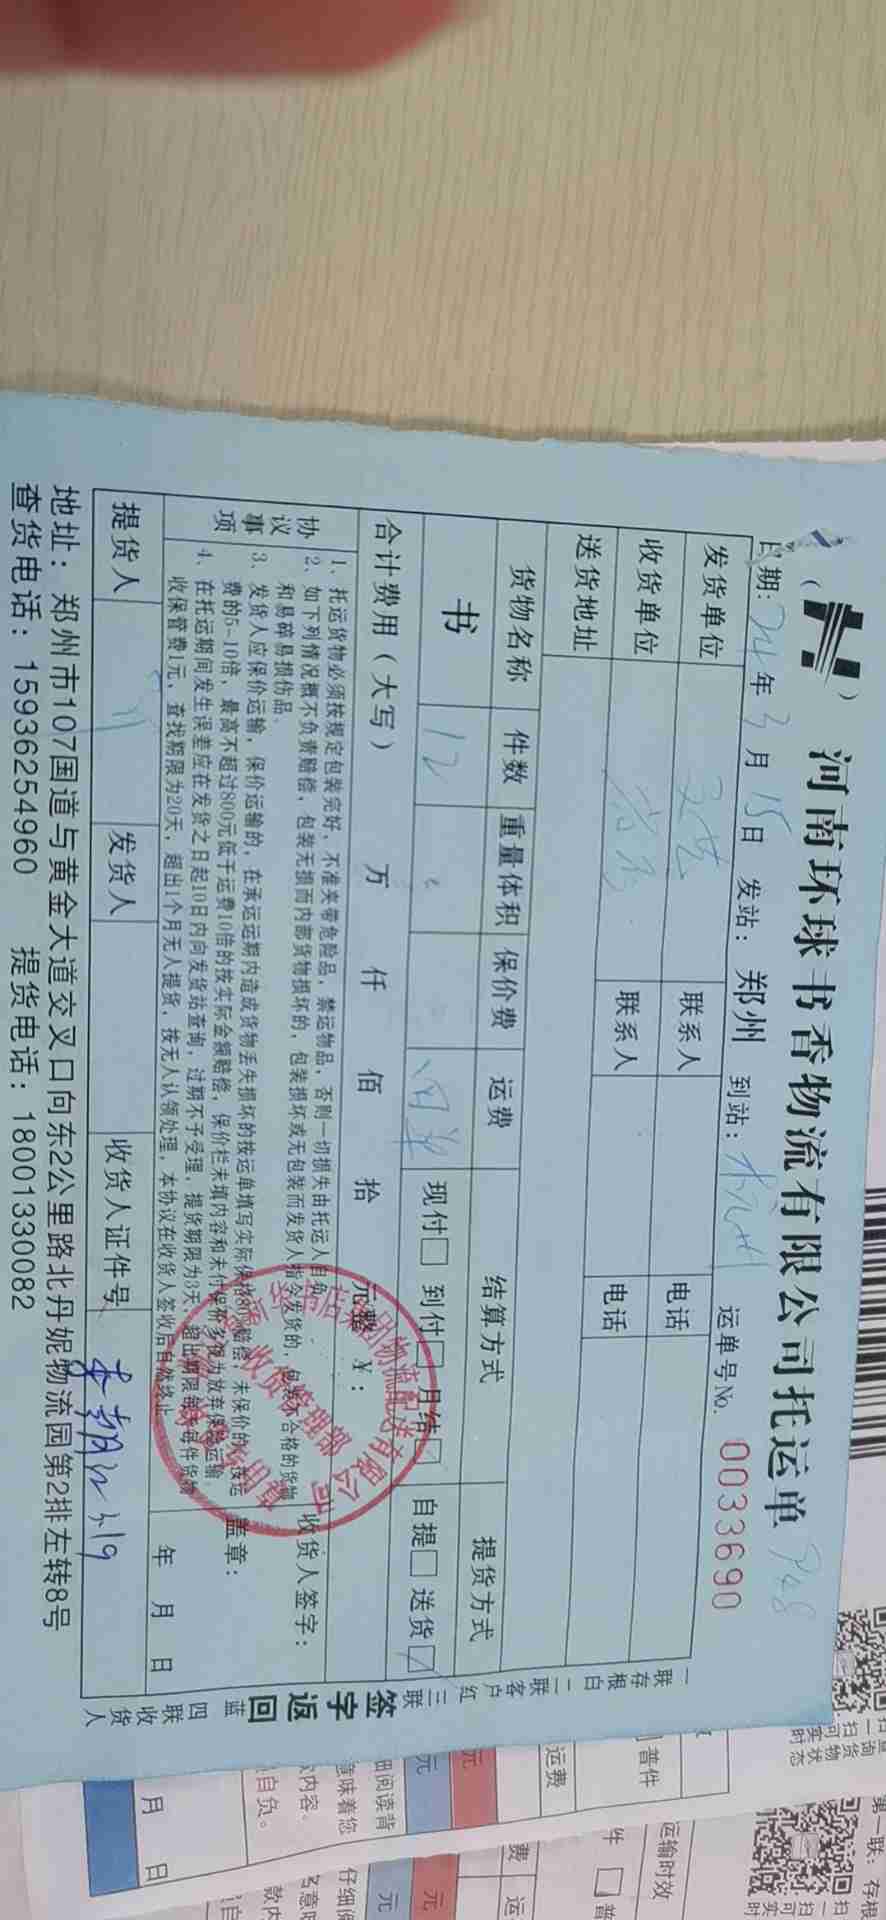 河南环球书香物流有限公司托运单
日期：24年3月15日 发站：郑州 到站： 运单号No. 0033690
发货单位 联系人 电话
收货单位 联系人 电话
送货地址
货物名称 件数 重量体积 保价费 运费 结算方式 提货方式
书 12 回单 现付□ 到付□ 月结□ 自提□ 送货□
合计费用（大写） 万 仟 佰 拾 元整 ¥：
协议事项
1、托运货物必须按规定包装完好，不准夹带危险品，禁运物品，否则一切损失由托运人自负
2、如下列情况概不负责赔偿，包装无损而内部货物损坏的，包装损坏或无包装而发货人指令发货的，包装不合格的货物
和易碎易损伤品。
3、发货人应保价运输，保价运输的，在承运期内造成货物丢失损坏的按运单填写实际价格80%赔偿，未保价的，按运
费的5-10倍，最高不超过800元低于运费10倍的按实际金额赔偿，保价栏未填内容和未付保价多视为放弃保价运输。
4、在托运期间发生误差应在发货之日起10日内向发货站查询，过期不予受理，提货期限为3天，超出期限每天每件货物
收保管费1元，查找期限为20天，超出1个月无人提货，按无人认领处理，本协议在收货人签收后自然终止
收货人签字：
盖章：
年 月 日
提货人 发货人 收货人证件号
3.19
地址：郑州市107国道与黄金大道交叉口向东2公里路北丹妮物流园第2排左转8号
查货电话：15936254960 提货电话：18001330082
一联存根白 二联客户红 三联签字返回蓝 四联收货人
收货管理部
物流配送有限公司
运费
普件
运输时效
第一联：存根
元
元
细阅读背
意味着您
款内容。
自负。
月 日